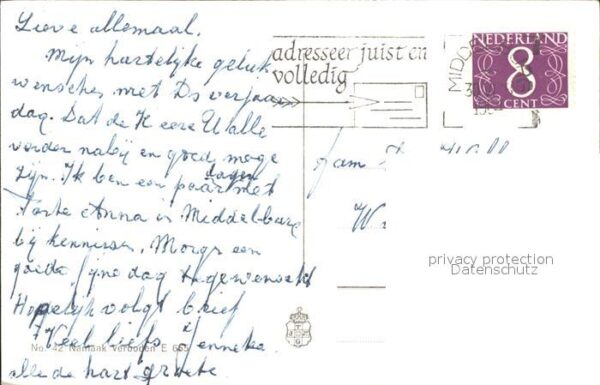 Lieve allemaal.
Mijn hartelijke geluk
wensches met Ds verjaar
dag. Dat de Heere U alle
verder nabij en goed moge
zijn. Ik ben een paar dagen met
Tante Anna in Middelburg
bij kennissen. Morge een
goede fijne dag toegewenscht
Hopelijk volgt brief
Veel liefs Jenneke
alle de hart. groete
No. 42 Namaak verboden E
adresseer juist en
volledig
NEDERLAND
8
CENT
Fam
privacy protection
Datenschutz